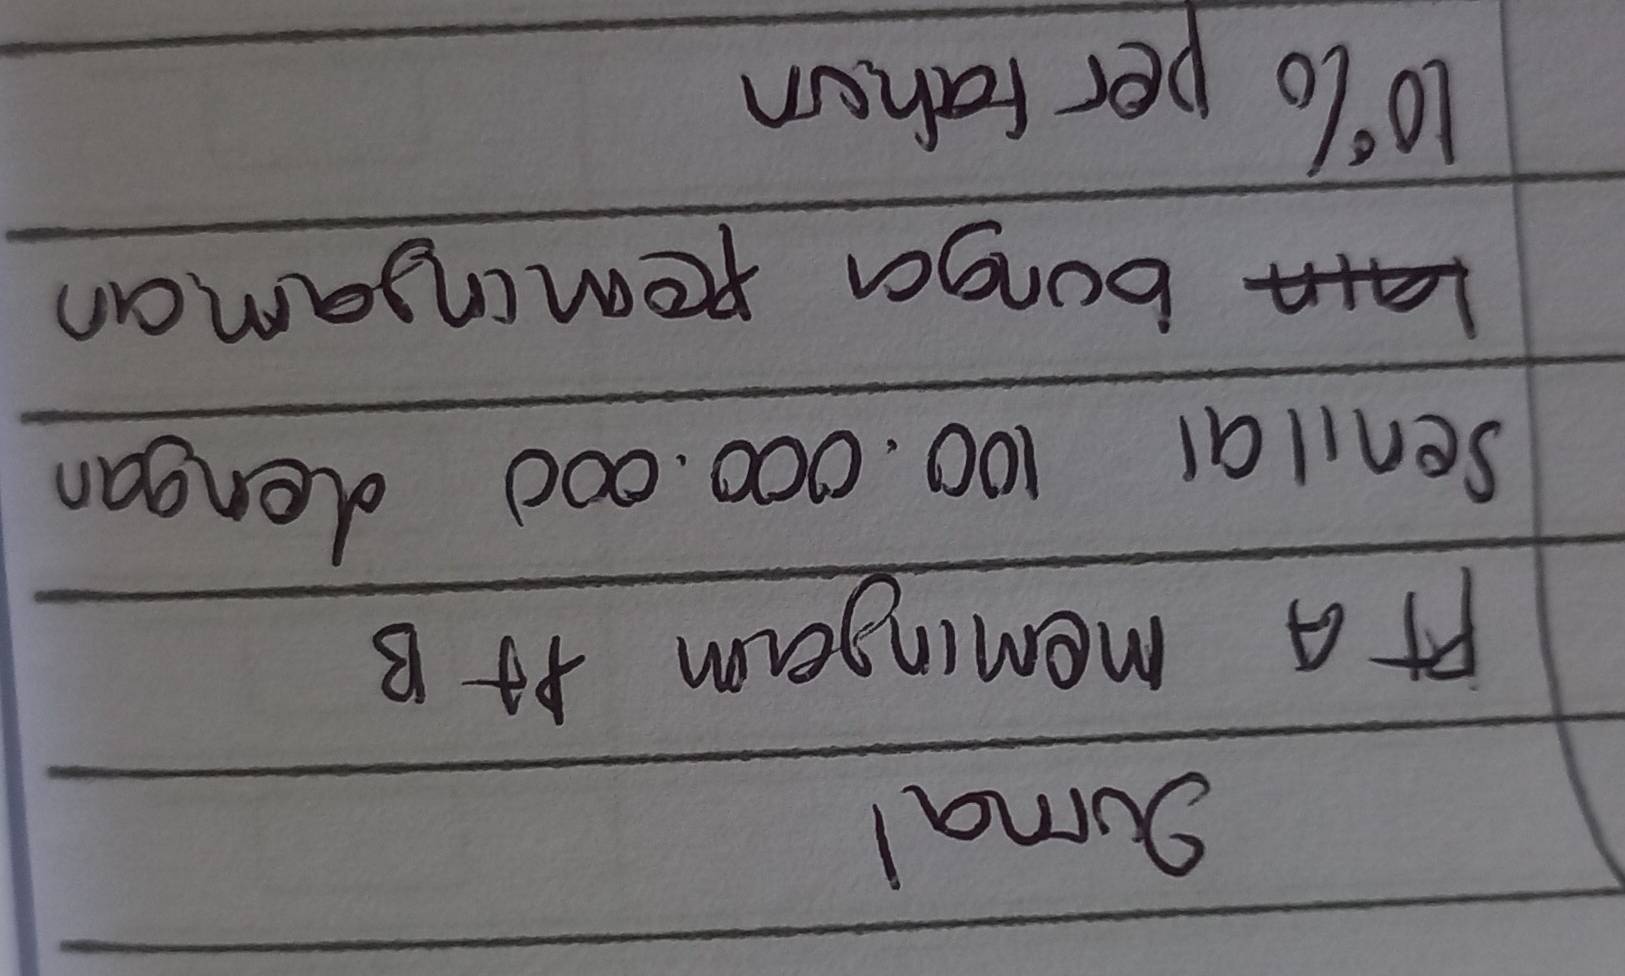 Jurnal
PT A memingam PT B
senilai 100.000.000 dengan
bunga pemingaman
10% per tahun